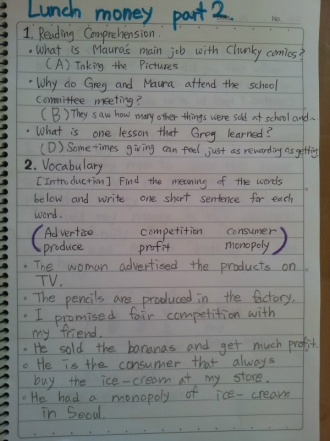 Lunch money part 2.
No.
1. Reading Comprehension.
• What is Maura's main job with Chunky comics?
(A) Inking the Pictures
• Why do Greg and Maura attend the school
committee meeting?
(B) They saw how many other things were sold at school and~
• What is one lesson that Greg learned?
(D) Some-times giving can feel just as rewarding as getting.
2. Vocabulary
[Introduction] Find the meaning of the words
below and write one short sentence for each
word.
(Advertize competition consumer
produce profit monopoly)
• The woman advertised the products on
TV.
• The pencils are produced in the factory.
• I promised fair competition with
my friend.
• He sold the bananas and get much profit.
• He is the consumer that always
buy the ice-cream at my store.
• He had a monopoly of ice-cream
in Seoul.